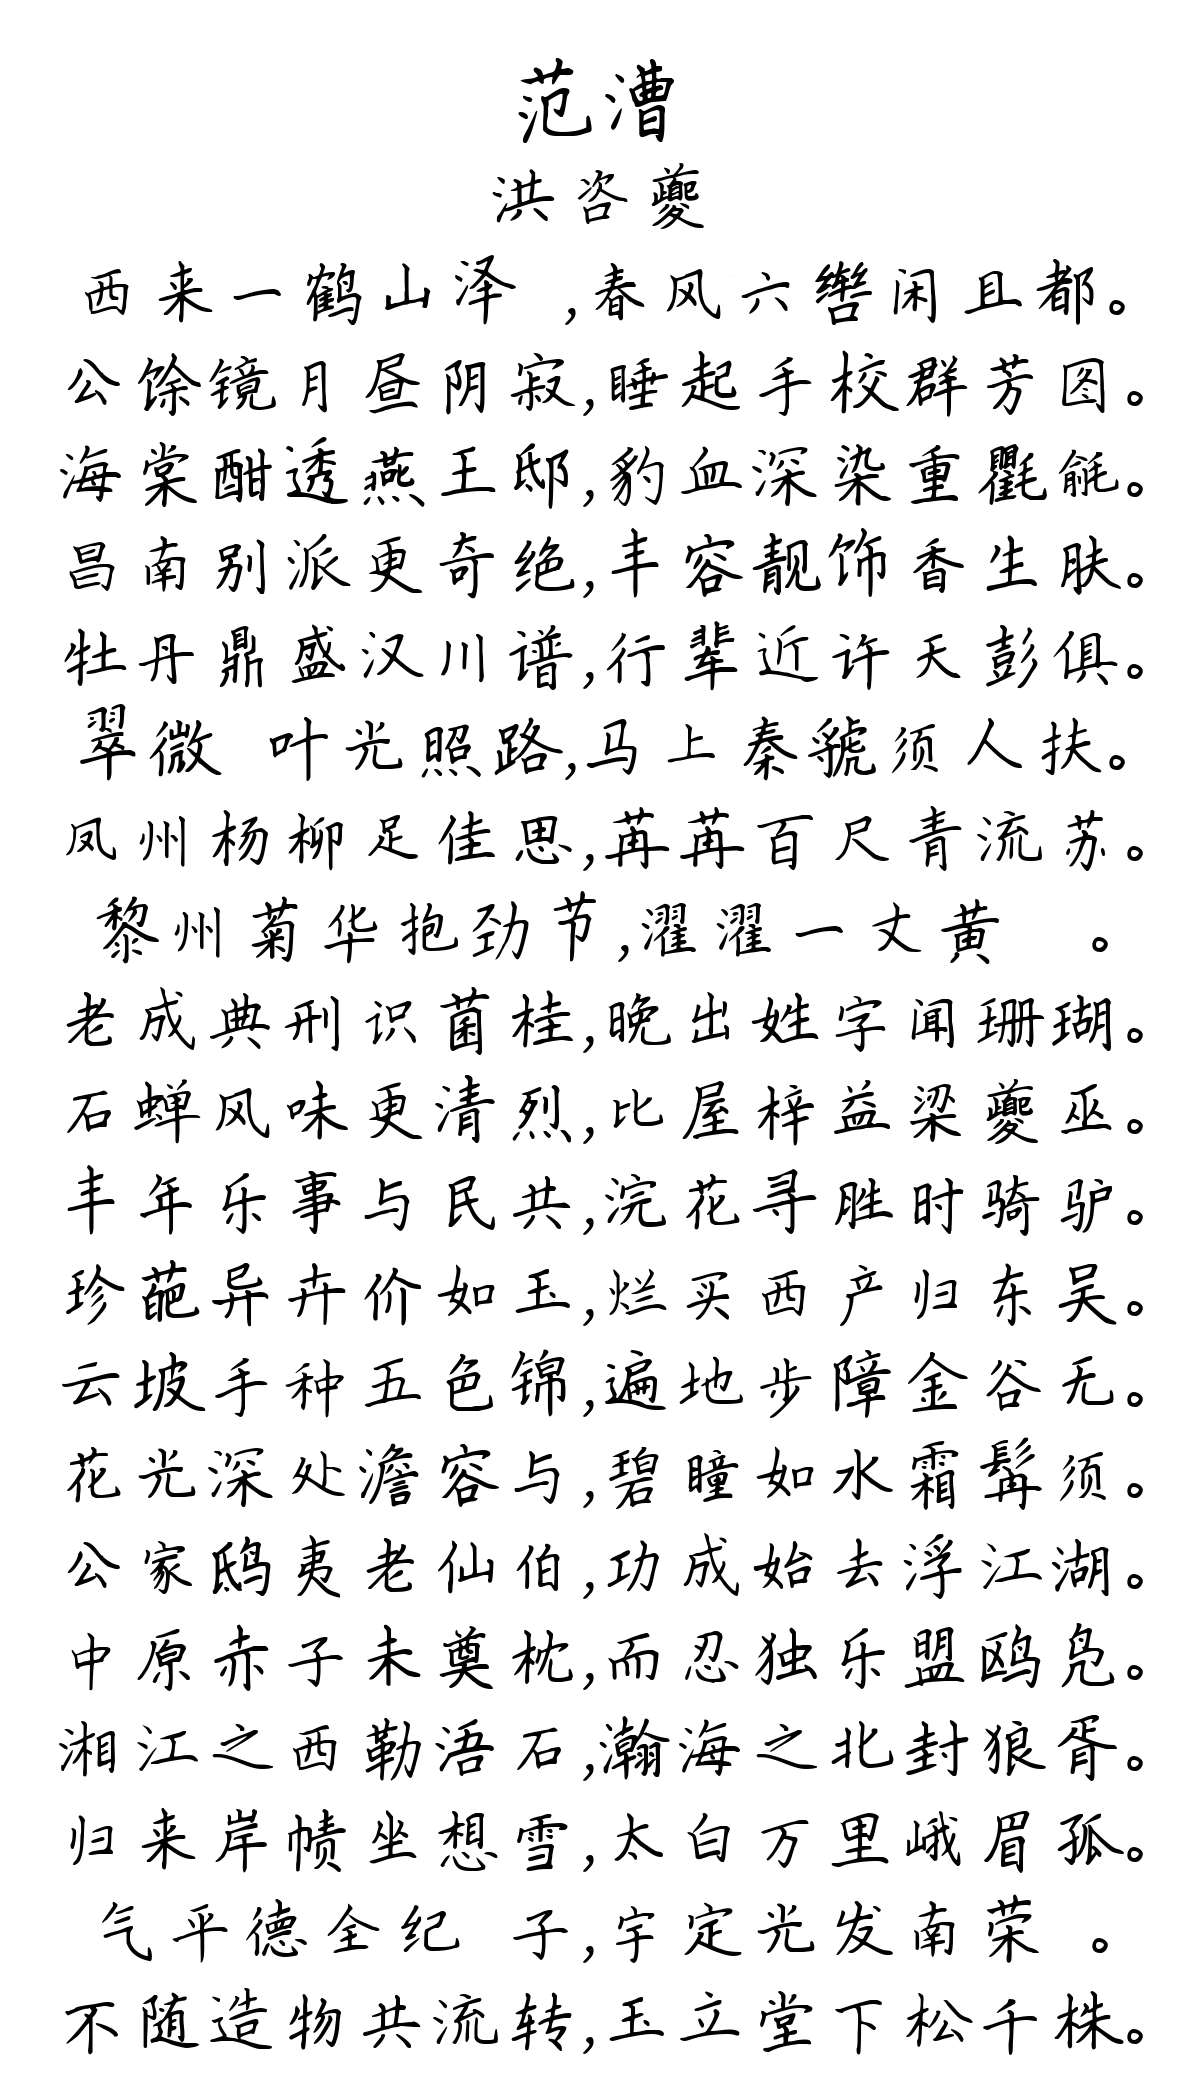 范漕
洪咨夔
西来一鹤山泽 ,春风六辔闲且都。
公馀镜月昼阴寂,睡起手校群芳图。
海棠酣透燕王邸,豹血深染重氍毹。
昌南别派更奇绝,丰容靓饰香生肤。
牡丹鼎盛汉川谱,行辈近许天彭俱。
翠微 叶光照路,马上秦虢须人扶。
凤州杨柳足佳思,苒苒百尺青流苏。
黎州菊华抱劲节,濯濯一丈黄 。
老成典刑识菌桂,晚出姓字闻珊瑚。
石蝉风味更清烈,比屋梓益梁夔巫。
丰年乐事与民共,浣花寻胜时骑驴。
珍葩异卉价如玉,烂买西产归东吴。
云坡手种五色锦,遍地步障金谷无。
花光深处澹容与,碧瞳如水霜髯须。
公家鸱夷老仙伯,功成始去浮江湖。
中原赤子未奠枕,而忍独乐盟鸥凫。
湘江之西勒浯石,瀚海之北封狼胥。
归来岸帻坐想雪,太白万里峨眉孤。
气平德全纪 子,宇定光发南荣 。
不随造物共流转,玉立堂下松千株。